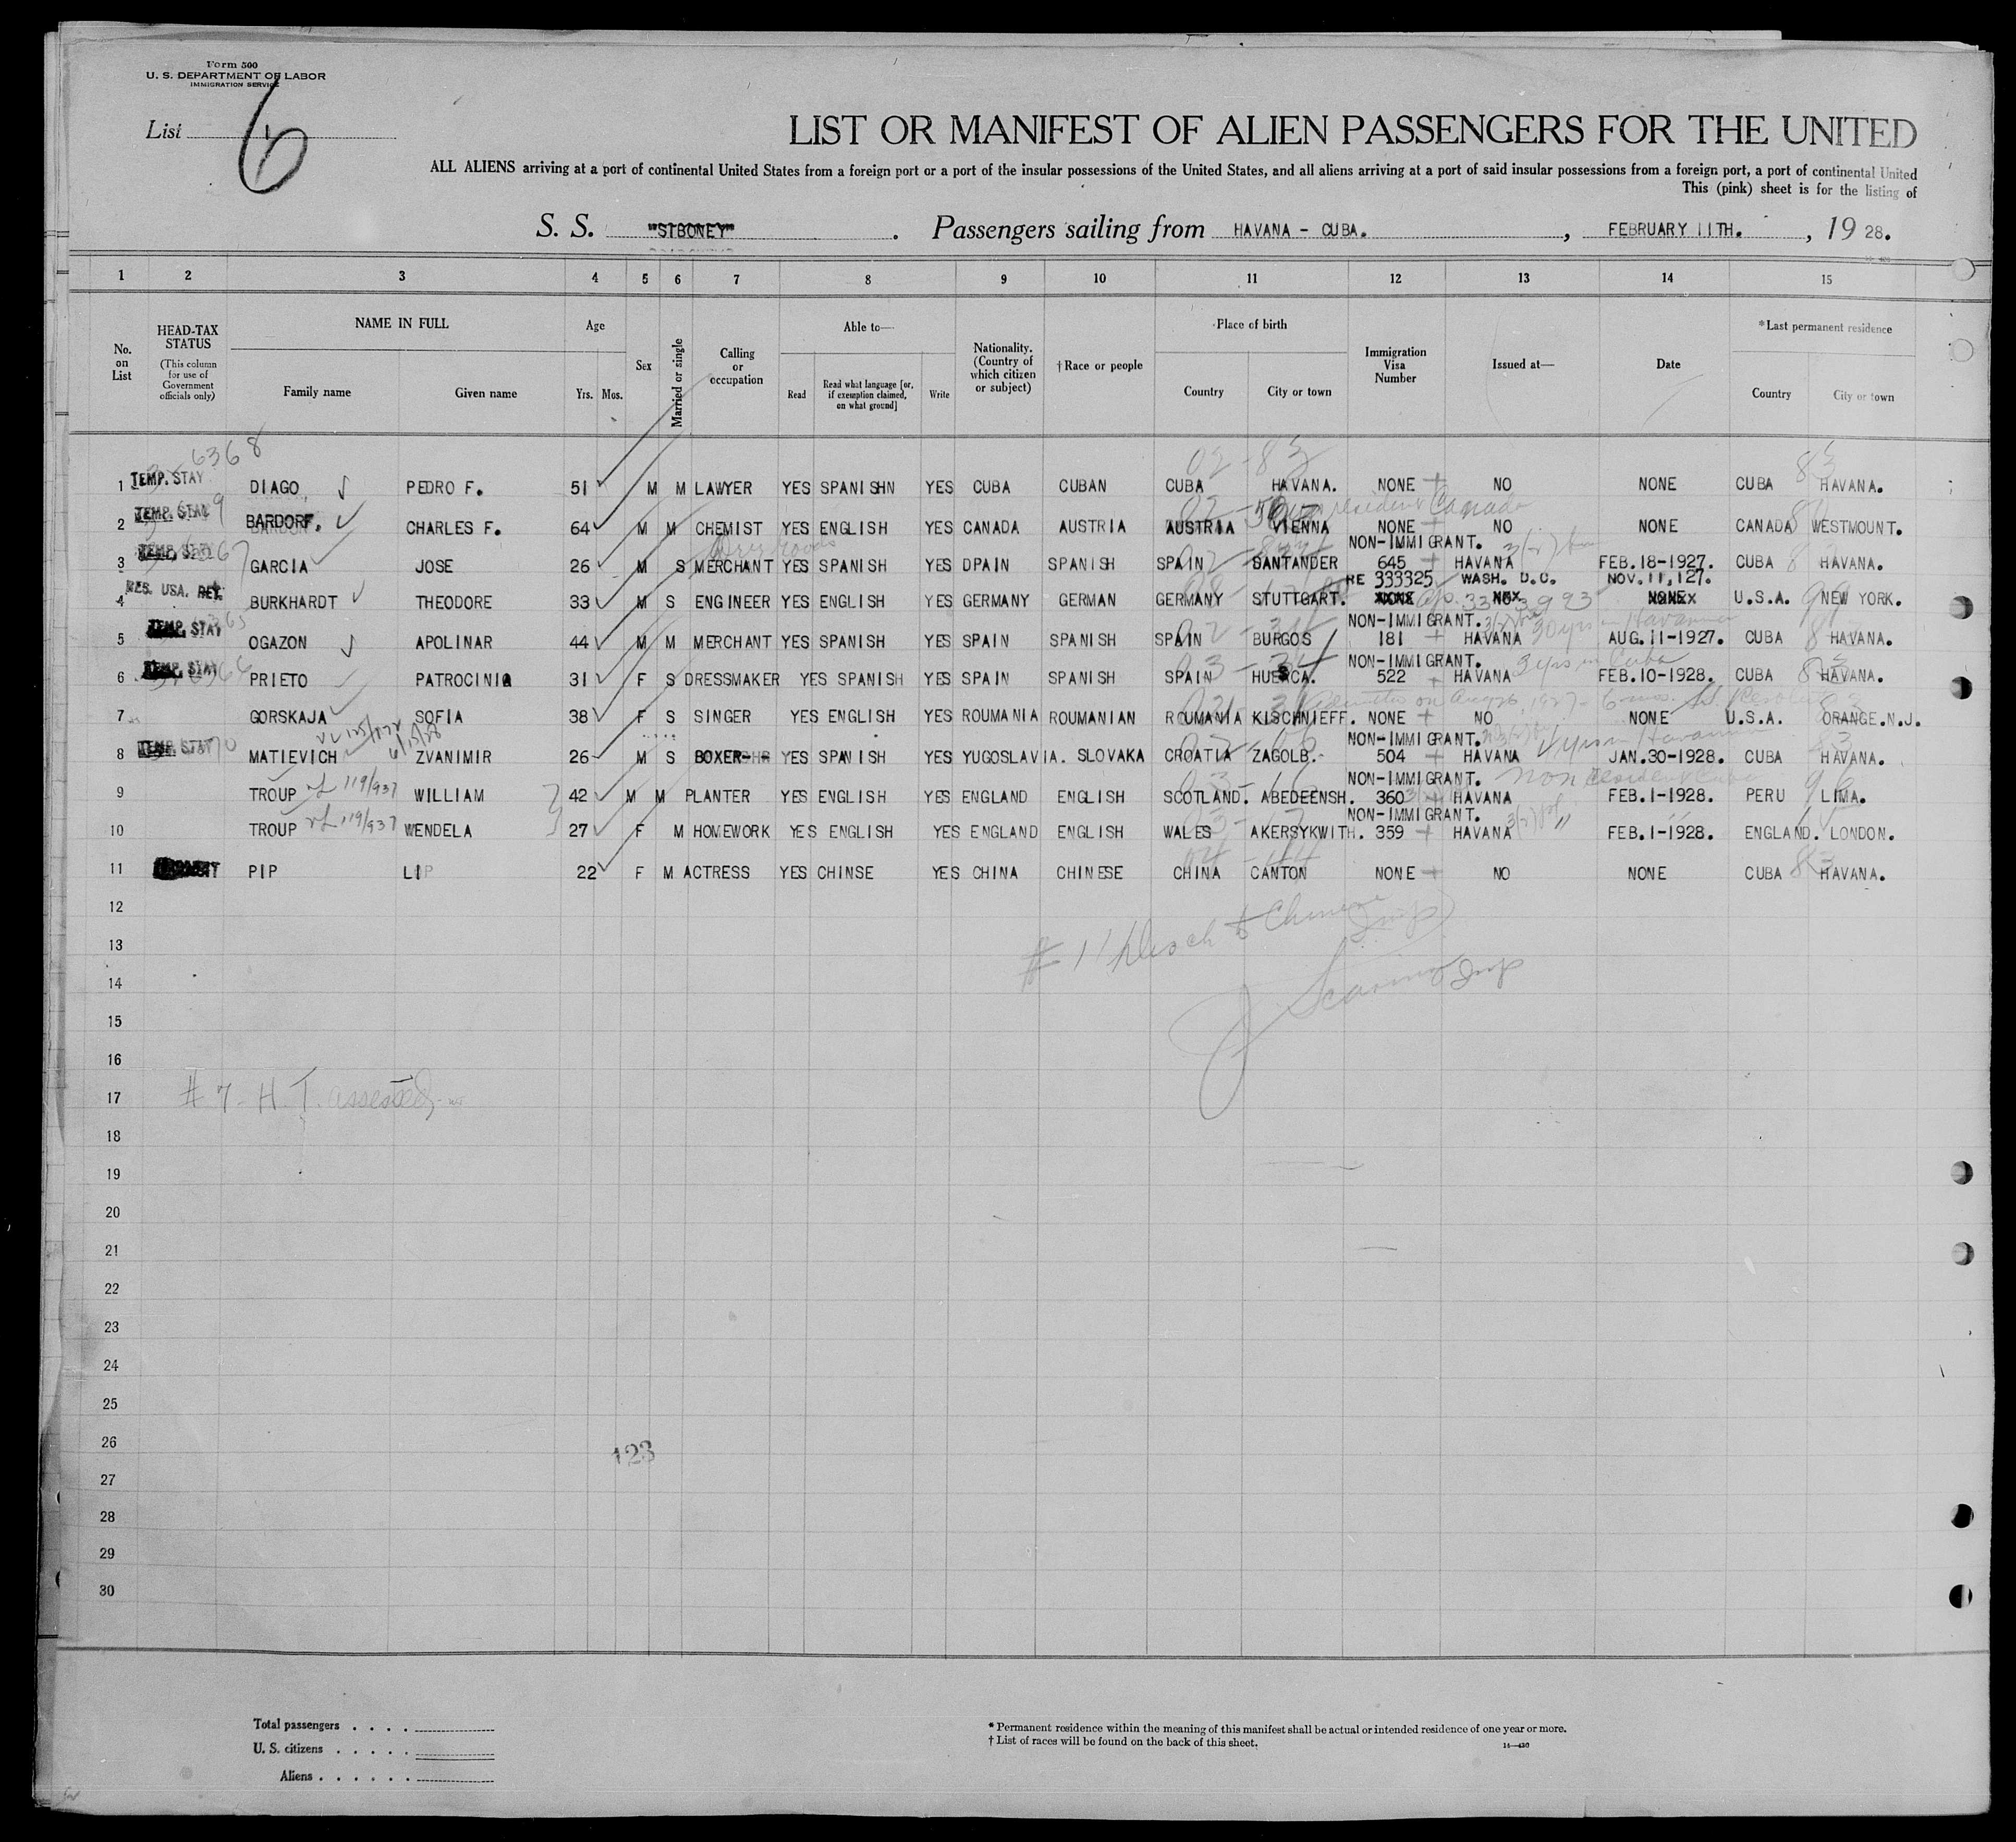 Form 500
U. S. DEPARTMENT OF LABOR
IMMIGRATION SERVICE
List 6
LIST OR MANIFEST OF ALIEN PASSENGERS FOR THE UNITED
ALL ALIENS arriving at a port of continental United States from a foreign port or a port of the insular possessions of the United States, and all aliens arriving at a port of said insular possessions from a foreign port, a port of continental United
This (pink) sheet is for the listing of
S. S. "SIBONEY". Passengers sailing from HAVANA - CUBA. , FEBRUARY 11TH. , 19 28.
1 2 3 4 5 6 7 8 9 10 11 12 13 14 15
No. on List
HEAD-TAX STATUS
(This column for use of Government officials only)
NAME IN FULL
Family name Given name
Age
Yrs. Mos.
Sex
Married or single
Calling or occupation
Able to—
Read Read what language [or, if exemption claimed, on what ground] Write
Nationality. (Country of which citizen or subject)
† Race or people
Place of birth
Country City or town
Immigration Visa Number
Issued at—
Date
* Last permanent residence
Country City or town
6368
02-83 83
1 TEMP. STAY DIAGO PEDRO F. 51 M M LAWYER YES SPANISHN YES CUBA CUBAN CUBA HAVANA. NONE NO NONE CUBA HAVANA.
resident Canada
2 TEMP. STAY BARDORF. CHARLES F. 64 M M CHEMIST YES ENGLISH YES CANADA AUSTRIA AUSTRIA VIENNA NONE NO NONE CANADA WESTMOUNT.
Dry Goods NON-IMMIGRANT.
3 TEMP. STAY GARCIA JOSE 26 M S MERCHANT YES SPANISH YES DPAIN SPANISH SPAIN SANTANDER 645 HAVANA FEB.18-1927. CUBA HAVANA.
RE 333325 WASH. D.C. NOV.11,127.
4 RES. USA. RET. BURKHARDT THEODORE 33 M S ENGINEER YES ENGLISH YES GERMANY GERMAN GERMANY STUTTGART. NONE NO NONE U.S.A. 99 NEW YORK.
NON-IMMIGRANT. 30 yrs in Havana
5 TEMP. STAY OGAZON APOLINAR 44 M M MERCHANT YES SPANISH YES SPAIN SPANISH SPAIN BURGOS 181 HAVANA AUG.11-1927. CUBA HAVANA.
NON-IMMIGRANT. 3 yrs in Cuba
6 TEMP. STAY PRIETO PATROCINIA 31 F S DRESSMAKER YES SPANISH YES SPAIN SPANISH SPAIN HUESCA. 522 HAVANA FEB.10-1928. CUBA HAVANA.
7 GORSKAJA SOFIA 38 F S SINGER YES ENGLISH YES ROUMANIA ROUMANIAN ROUMANIA KISCHNIEFF. NONE NO NONE U.S.A. ORANGE.N.J.
6/15/28
NON-IMMIGRANT. 4 yrs in Havana
8 TEMP. STAY MATIEVICH ZVANIMIR 26 M S BOXER YES SPANISH YES YUGOSLAVIA. SLOVAKA CROATIA ZAGOLB. 504 HAVANA JAN.30-1928. CUBA HAVANA.
NON-IMMIGRANT. Non resident Cuba 96
9 TROUP 119/937 WILLIAM 42 M M PLANTER YES ENGLISH YES ENGLAND ENGLISH SCOTLAND. ABEDEENSH. 360 HAVANA FEB.1-1928. PERU LIMA.
NON-IMMIGRANT.
10 TROUP 119/937 WENDELA 27 F M HOMEWORK YES ENGLISH YES ENGLAND ENGLISH WALES AKERSYKWITH. 359 HAVANA " FEB.1-1928. ENGLAND. LONDON.
11 PIP LI 22 F M ACTRESS YES CHINSE YES CHINA CHINESE CHINA CANTON NONE NO NONE CUBA 83 HAVANA.
12
13 # 11 Disch to Chinese Insp
14
15
16
17 # 7 - H. T. assested
18
19
20
21
22
23
24
25
26
123
27
28
29
30
Total passengers . . . .
U. S. citizens . . . . .
Aliens . . . . . .
* Permanent residence within the meaning of this manifest shall be actual or intended residence of one year or more.
† List of races will be found on the back of this sheet.
14—430